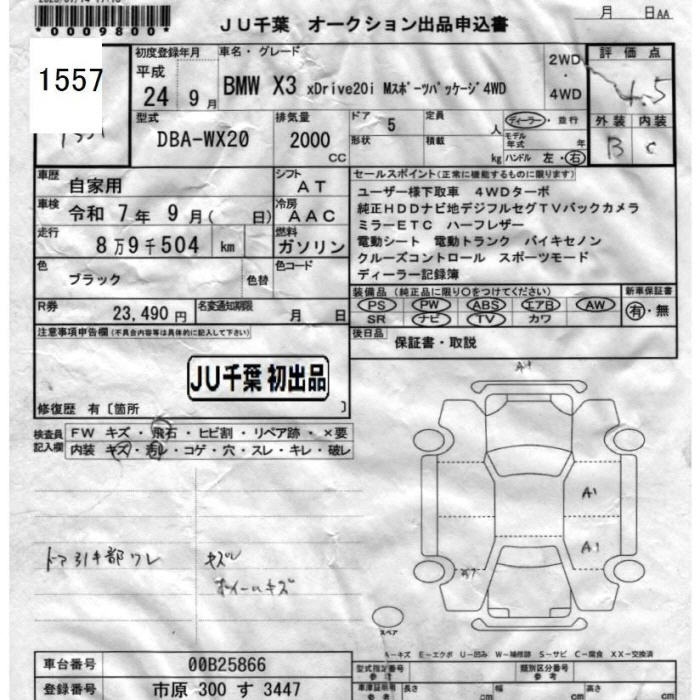 *0009800*
JU千葉 オークション出品申込書
月 日AA
1557
初度登録年月
平成
24 9月
車名・グレード
BMW X3 xDrive20i Mスポーツパッケージ4WD
2WD
・
4WD
評価点
4.5
外装 内装
B C
型式
DBA-WX20
排気量
2000
CC
ドア
5
定員
人
形状
積載
kg
ディーラー・並行
モデル年式 年
ハンドル 左・右
車歴
自家用
シフト
AT
車検
令和 7年 9月( 日)
冷房
AAC
走行
8万9千504 km
燃料
ガソリン
色
ブラック
色替
色コード
R券
23,490円
名変通知期限
月 日
セールスポイント(正常に機能するものに限ります)
ユーザー様下取車 4WDターボ
純正HDDナビ地デジフルセグTVバックカメラ
ミラーETC ハーフレザー
電動シート 電動トランク バイキセノン
クルーズコントロール スポーツモード
ディーラー記録簿
装備品(純正品に限り〇をつけてください)
PS PW ABS エアB AW
SR ナビ TV カワ
新車保証書
有・無
後日品
保証書・取説
注意事項申告欄(不具合内容等は具体的に記入して下さい)
JU千葉 初出品
修復歴 有〔箇所 〕
検査員記入欄
FW キズ・飛石・ヒビ割・リペア跡・×要
内装 キズ・汚レ・コゲ・穴・スレ・キレ・破レ
ドア引手部ワレ
キズレ
ホイールキズ
A1
A1
A1
スペア
A−キズ E−エクボ U−凹み W−補修跡 S−サビ C−腐食 XX−交換済
車台番号
00B25866
登録番号
市原 300 す 3447
型式指定番号
参考
類別区分番号
参考
車庫証明用
参考
長さ
cm
幅
cm
高さ
cm